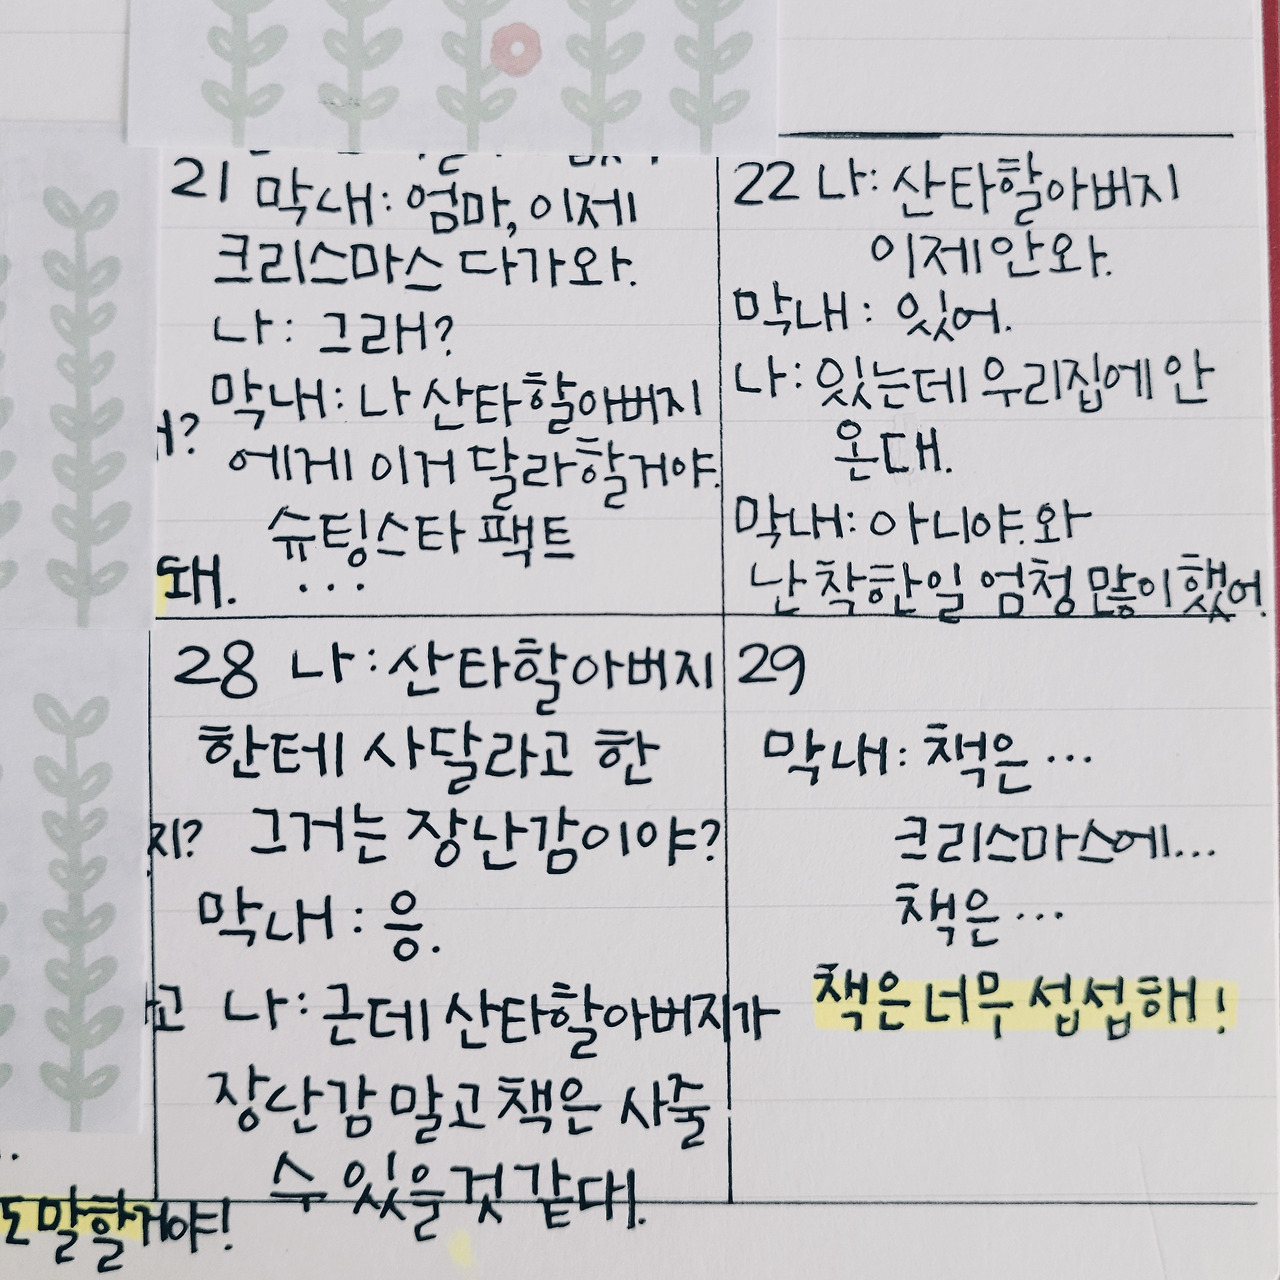 21 막내: 엄마, 이제
크리스마스 다가와.
나: 그래?
막내: 나 산타할아버지
에게 이거 달라할거야.
슈팅스타 팩트
...
22 나: 산타할아버지
이제 안와.
막내: 있어.
나: 있는데 우리집에 안
온대.
막내: 아니야. 와
난 착한일 엄청 많이 했어.
돼.
28 나: 산타할아버지
한테 사달라고 한
그거는 장난감이야?
막내: 응.
나: 근데 산타할아버지가
장난감 말고 책은 사줄
수 있을것 같대.
29
막내: 책은...
크리스마스에...
책은...
책은 너무 섭섭해!
지?
고
도 말할거야!